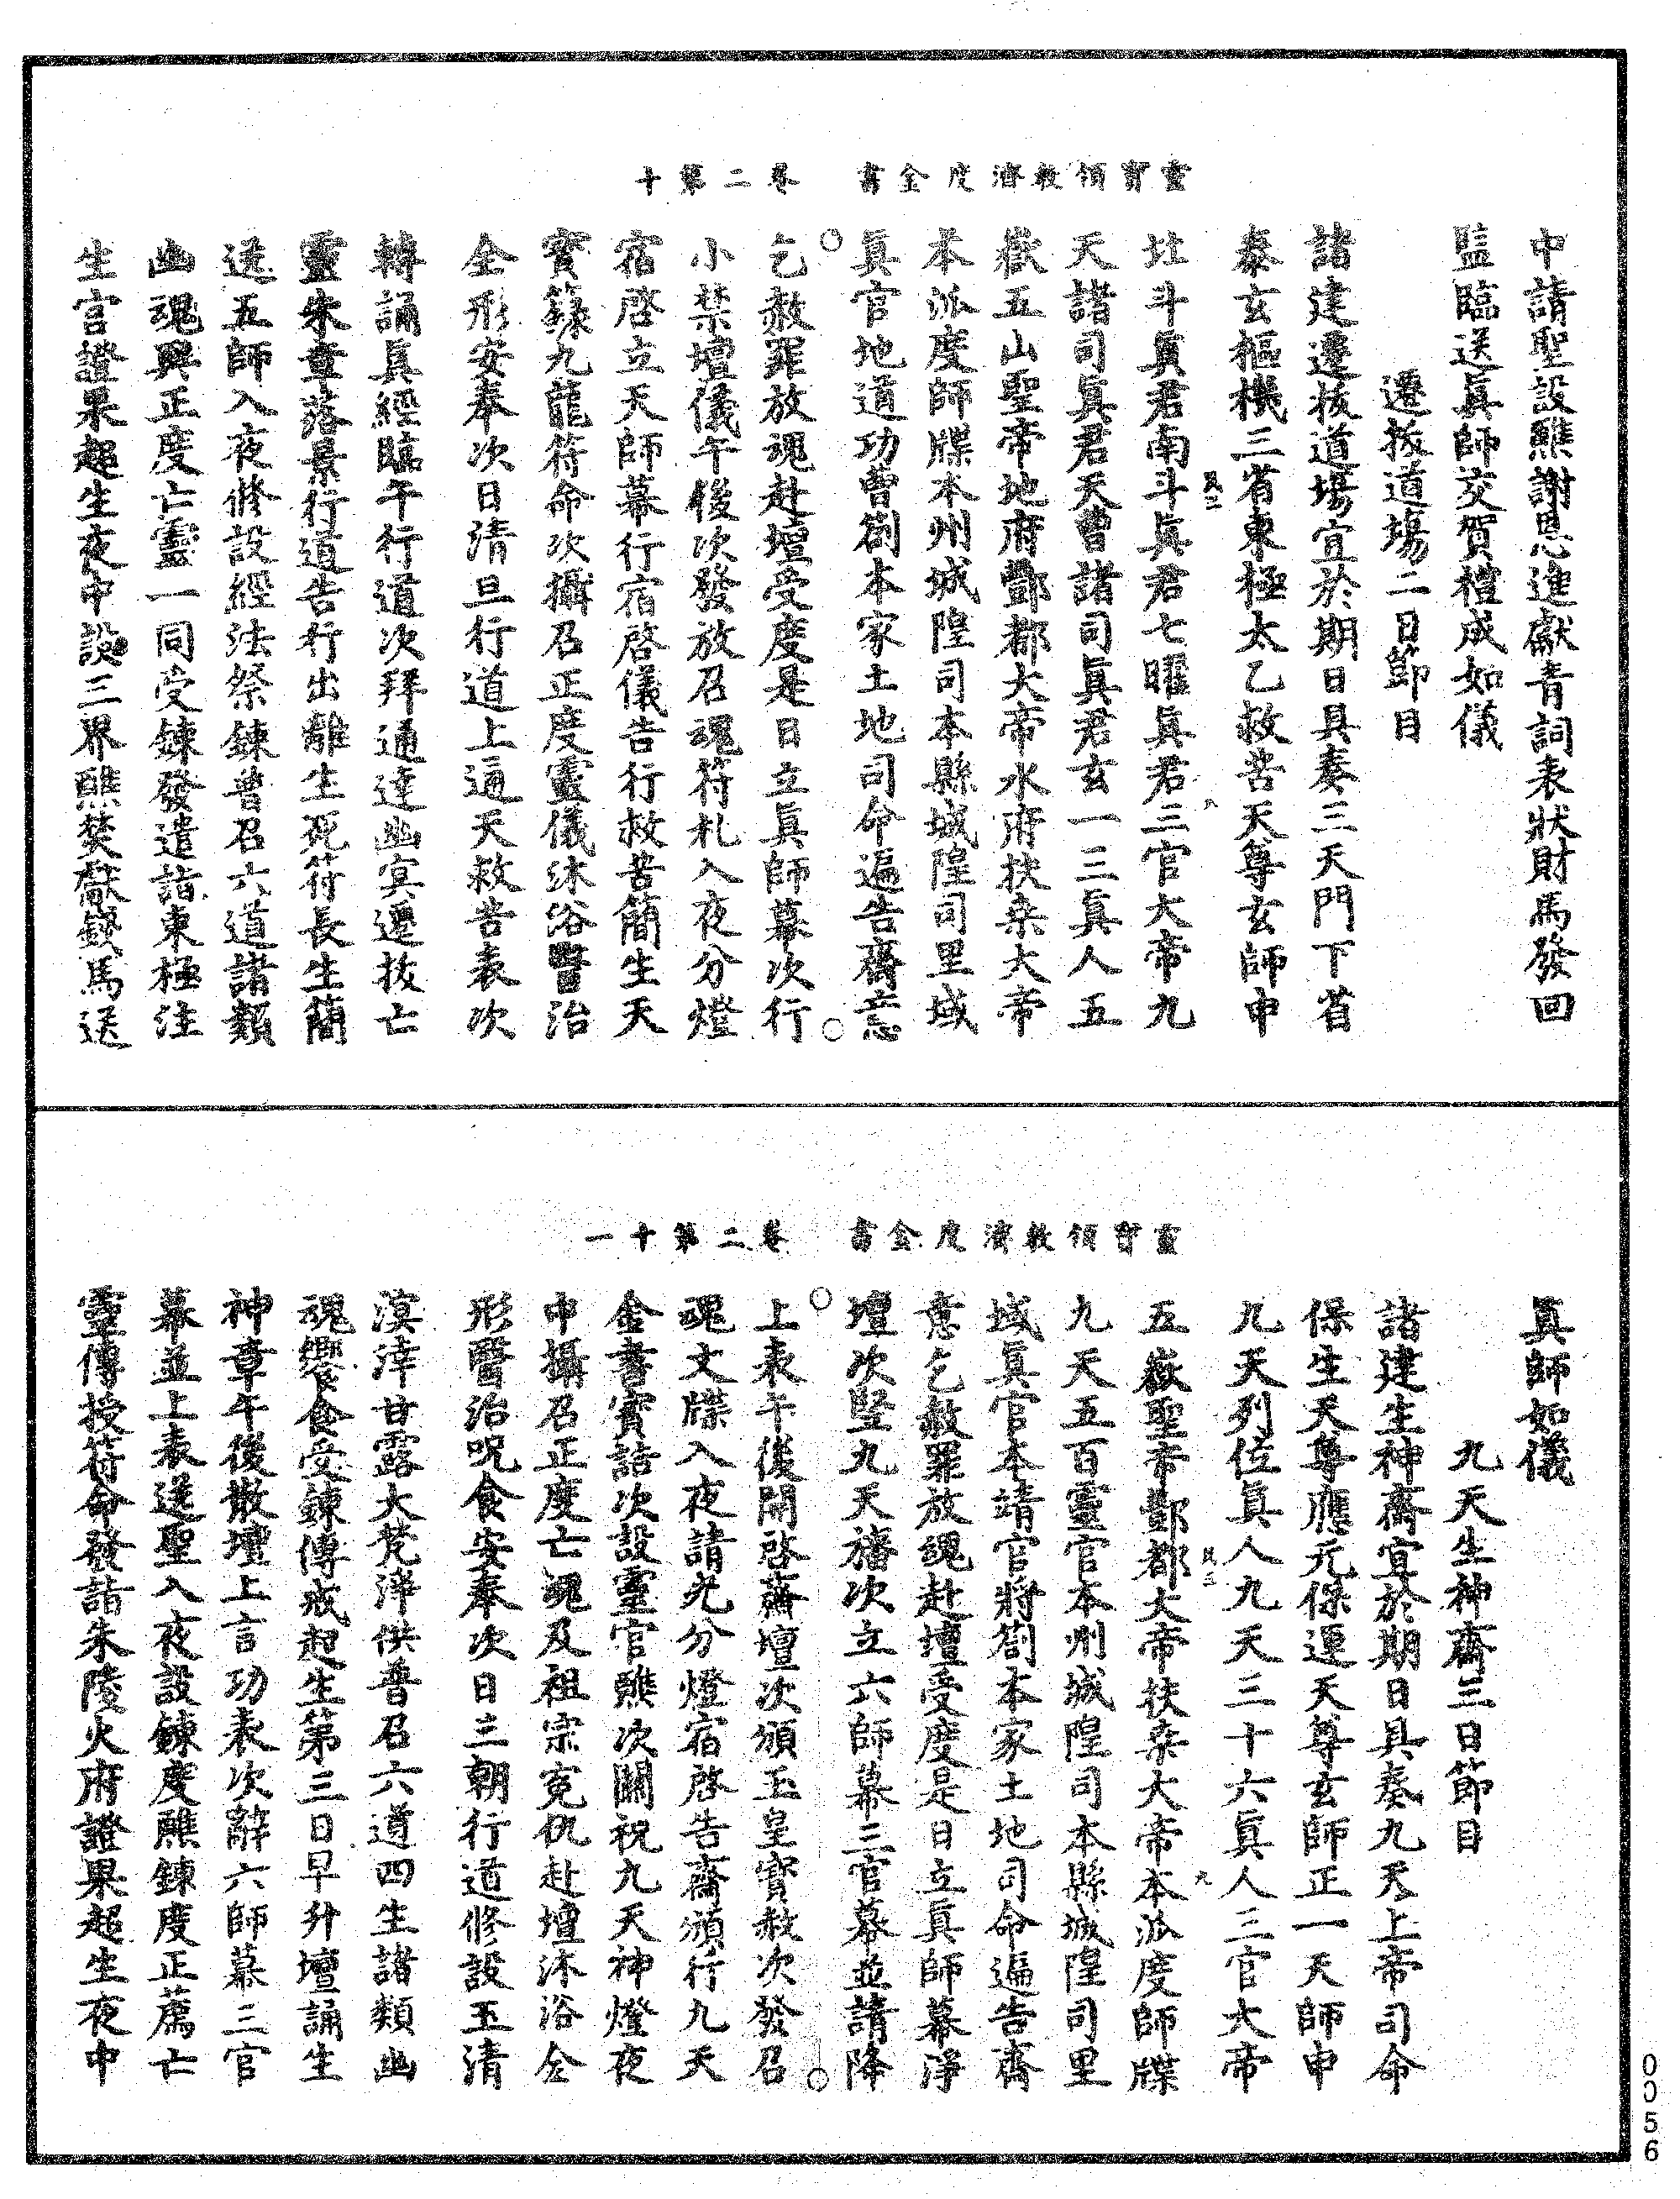 靈寶領教濟度金書　卷二第十
中請聖設醮謝恩進獻青詞表狀財馬發回
監臨送眞師交賀禮成如儀
遷拔道場二日節目
諸建遷拔道場宜於期日具奏三天門下省
泰玄樞機三省東極太乙救苦天尊玄師申
北斗眞君南斗眞君七曜眞君三官大帝九
天諸司眞君天曹諸司眞君玄一三眞人五
嶽五山聖帝地府酆都大帝水府扶桑大帝
本派度師牒本州城隍司本縣城隍司里域
眞官地道功曹劄本家土地司命遍告齋意
乞赦罪放魂赴壇受度是日立眞師幕次行
小禁壇儀午後次發放召魂符札入夜分燈
宿啓立天師幕行宿啓儀告行救苦簡生天
寶籙九龍符命次攝召正度靈儀沐浴醫治
全形安奉次日清旦行道上逼天救苦表次
轉誦眞經臨午行道次拜通達幽冥遷拔亡
靈朱章落景行道告行出離生死符長生簡
送五師入夜修設經法祭鍊普召六道諸類
幽魂與正度亡靈一同受鍊發遣詣東極注
生宮證果超生夜中設三界醮焚獻錢馬送
靈寶領教濟度金書　卷二第十一
眞師如儀
九天生神齋三日節目
諸建生神齋宜於期日具奏九天上帝司命
保生天尊應元保運天尊玄師正一天師申
九天列位眞人九天三十六眞人三官大帝
五嶽聖帝酆都大帝扶桑大帝本派度師牒
九天五百靈官本州城隍司本縣城隍司里
域眞官本靖官將劄本家土地司命遍告齋
意乞赦罪放魂赴壇受度是日立眞師幕淨
壇次竪九天旛次立六師幕三官幕並請降
上表午後開啓齋壇次頒玉皇寶赦次發召
魂文牒入夜請光分燈宿啓告齋頒行九天
金書寶誥次設靈官醮次關祝九天神燈夜
中攝召正度亡魂及祖宗寃仇赴壇沐浴全
形醫治呪食安奉次日三朝行道修設玉清
溟涬甘露大梵淨供普召六道四生諸類幽
魂饗食受鍊傳戒起生第三日早升壇誦生
神章午後散壇上言功表次辭六師幕三官
幕並上表送聖入夜設鍊度醮鍊度正薦亡
靈傳授符命發詣朱陵火府證果超生夜中
0056